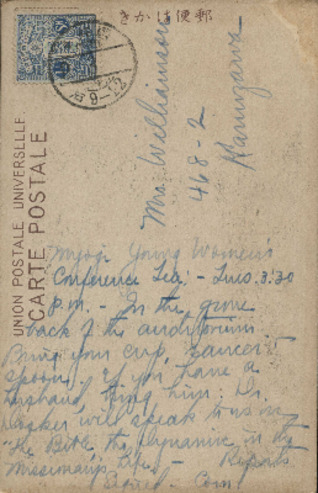 郵便はかき
UNION POSTALE UNIVERSELLE
CARTE POSTALE
Mrs. Williamson
468-2
Karuizawa
Young Women's
Conference Tea, - Tues. 3:30
p.m. - In the grove
back of the auditorium.
Bring your cup, saucer &
spoon. If you have a
husband, bring him. Dr.
will speak to us on
"The Bible, the Dynamic in the
Missionary's Life." - Reports